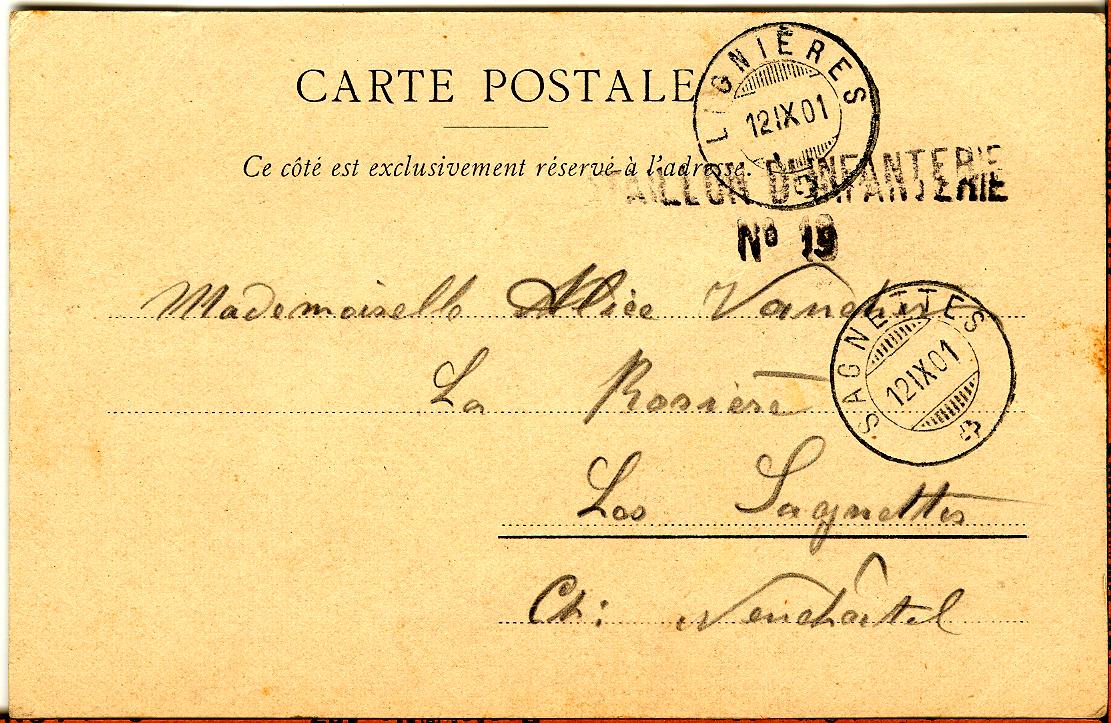 CARTE POSTALE
LIGNIÈRES
12 IX 01
Ce côté est exclusivement réservé à l'adresse.
TAILLON D'INFANTERIE
No 19
Mademoiselle Alice
SAGNETTES
12 IX 01
La Rosière
Les Sagnettes
Ct: Neuchâtel